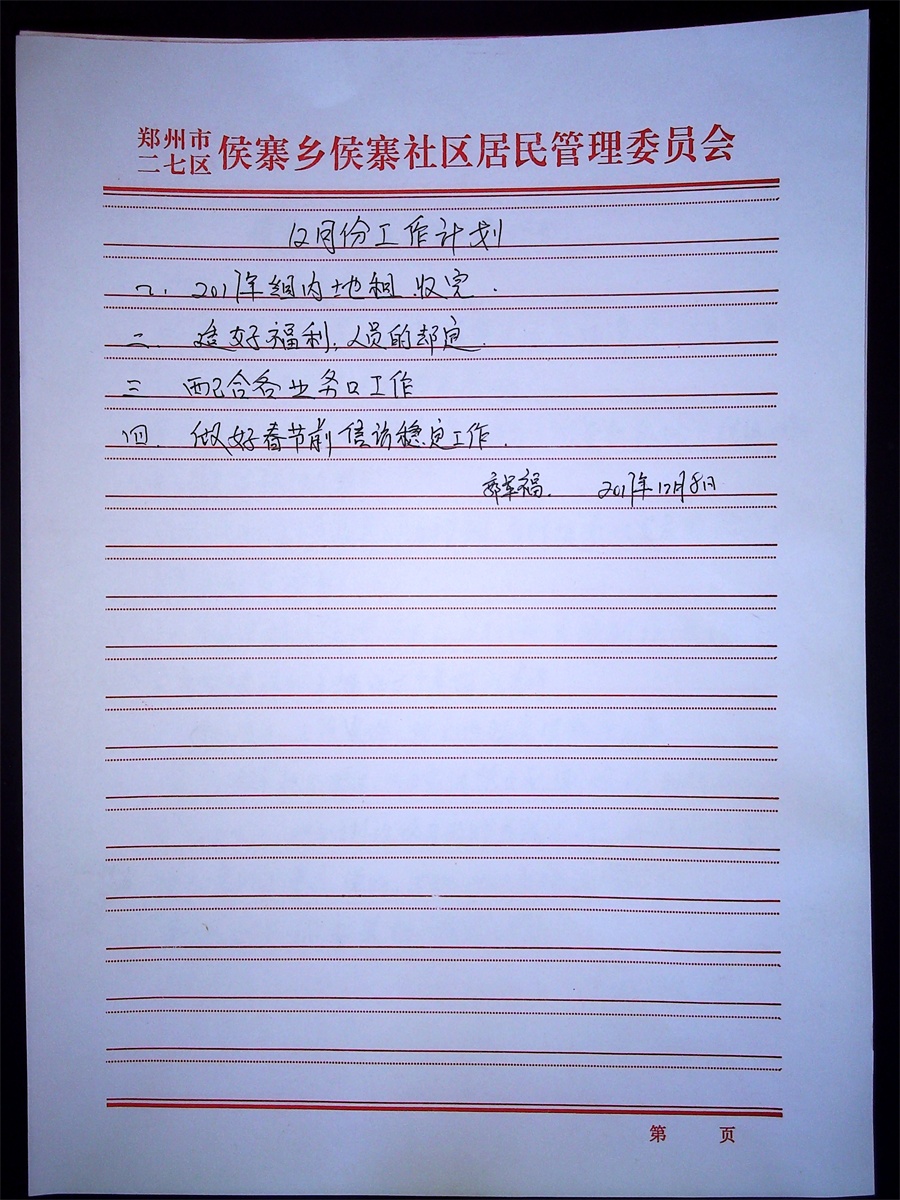 郑州市
二七区 侯寨乡侯寨社区居民管理委员会
12月份工作计划
一. 2017年组内地租收完.
二. 好福利人员的却定.
三 配合各业务口工作
四. 做好春节前信访稳定工作.
福. 2017年12月8日
第 页